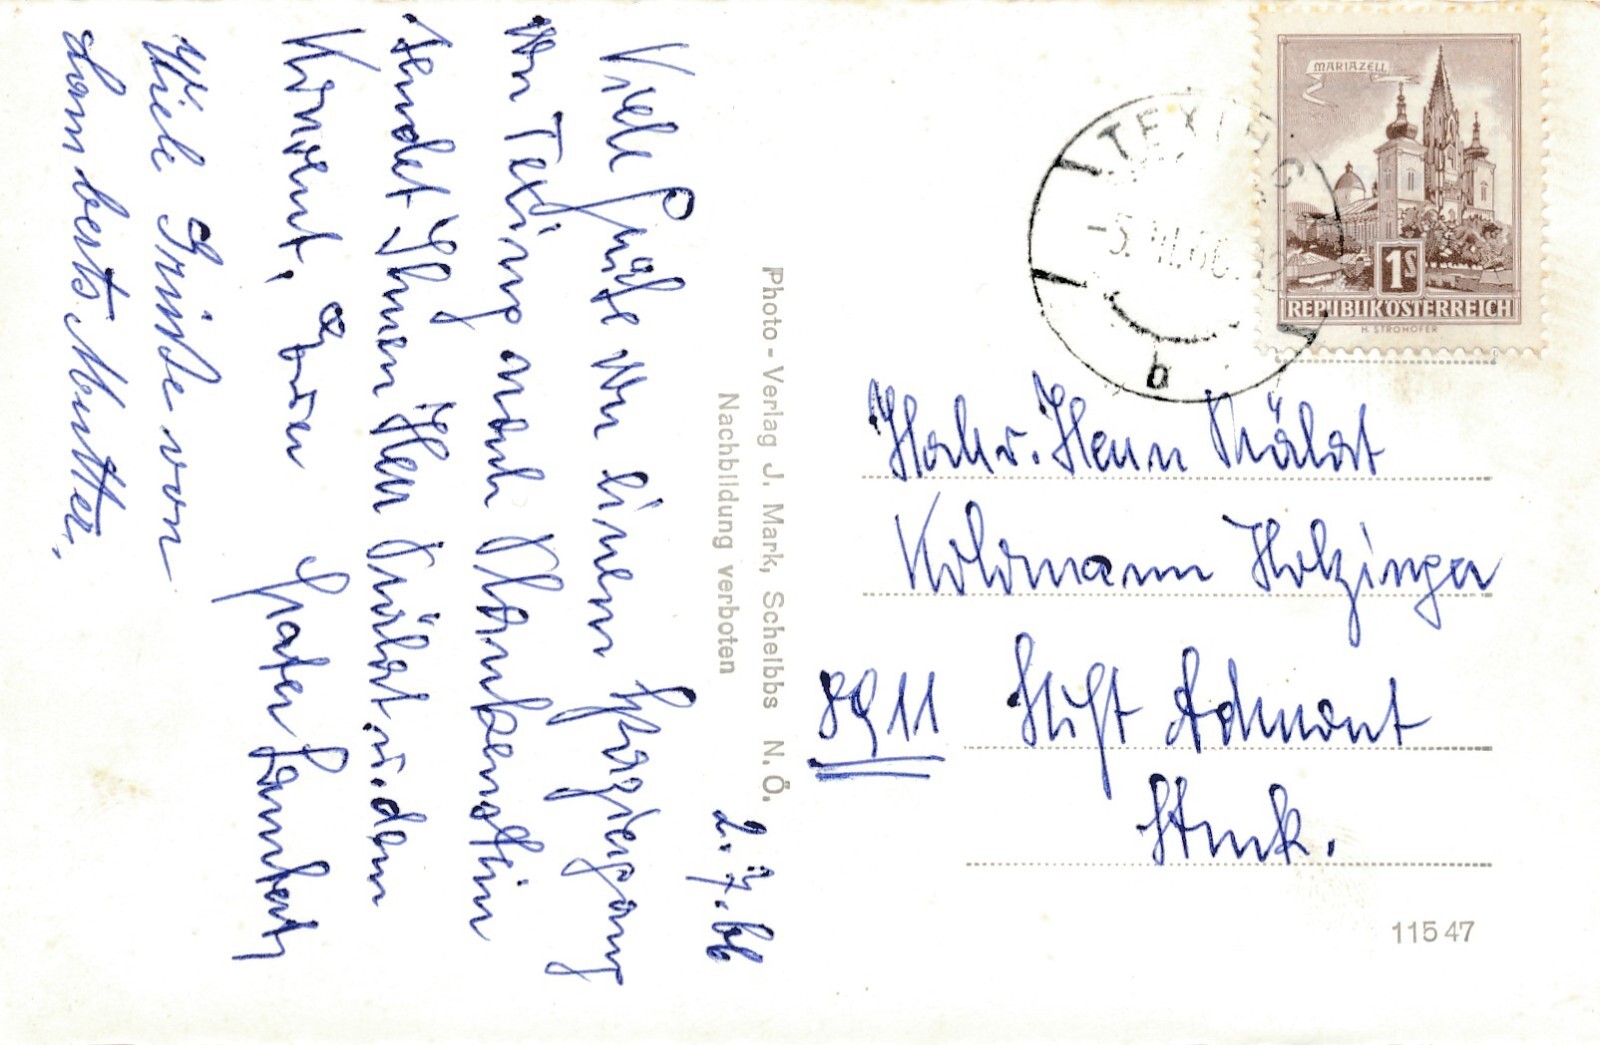 2. 7. 66
Viele Grüße von einem Spaziergang
von Texing nach Plankenstein
sendet Ihnen Herr Prälat u. dem
Konvent, Euer Frater Lambert
Viele Grüße von
Lamberts Mutter.
Photo-Verlag J. Mark, Scheibbs N. Ö.
Nachbildung verboten
MARIAZELL
1S
REPUBLIK ÖSTERREICH
H. STROHOFER
TEXING
-5.VII.66
b
Hochw. Herrn Prälat
Koloman Holzinger
8911 Stift Admont
Stmk.
11547